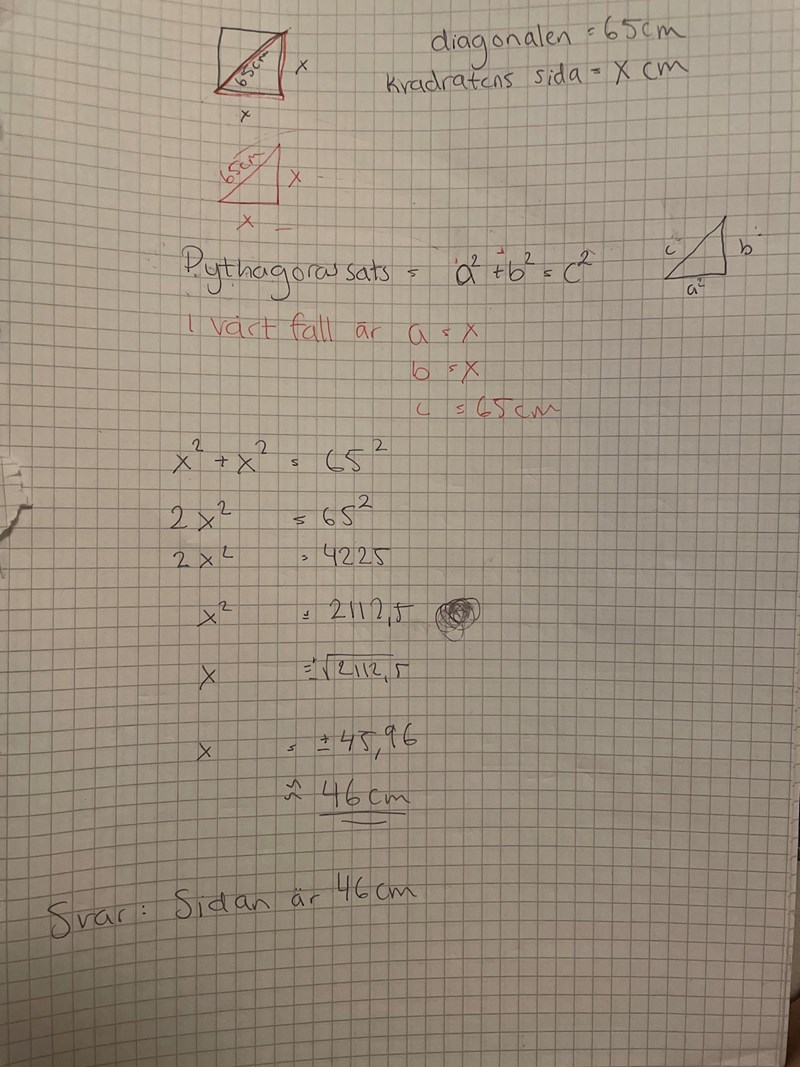 diagonalen = 65cm
65cm
x
kvadratens sida = x cm
x
65cm
x
x
Pythagoras sats = a² + b² = c²
c
b
a²
I vårt fall är a = x
b = x
c = 65cm
x² + x² = 65²
2x² = 65²
2x² = 4225
x² = 2112,5
x = ±√2112,5
x = ±45,96
≈ 46cm
Svar: Sidan är 46cm